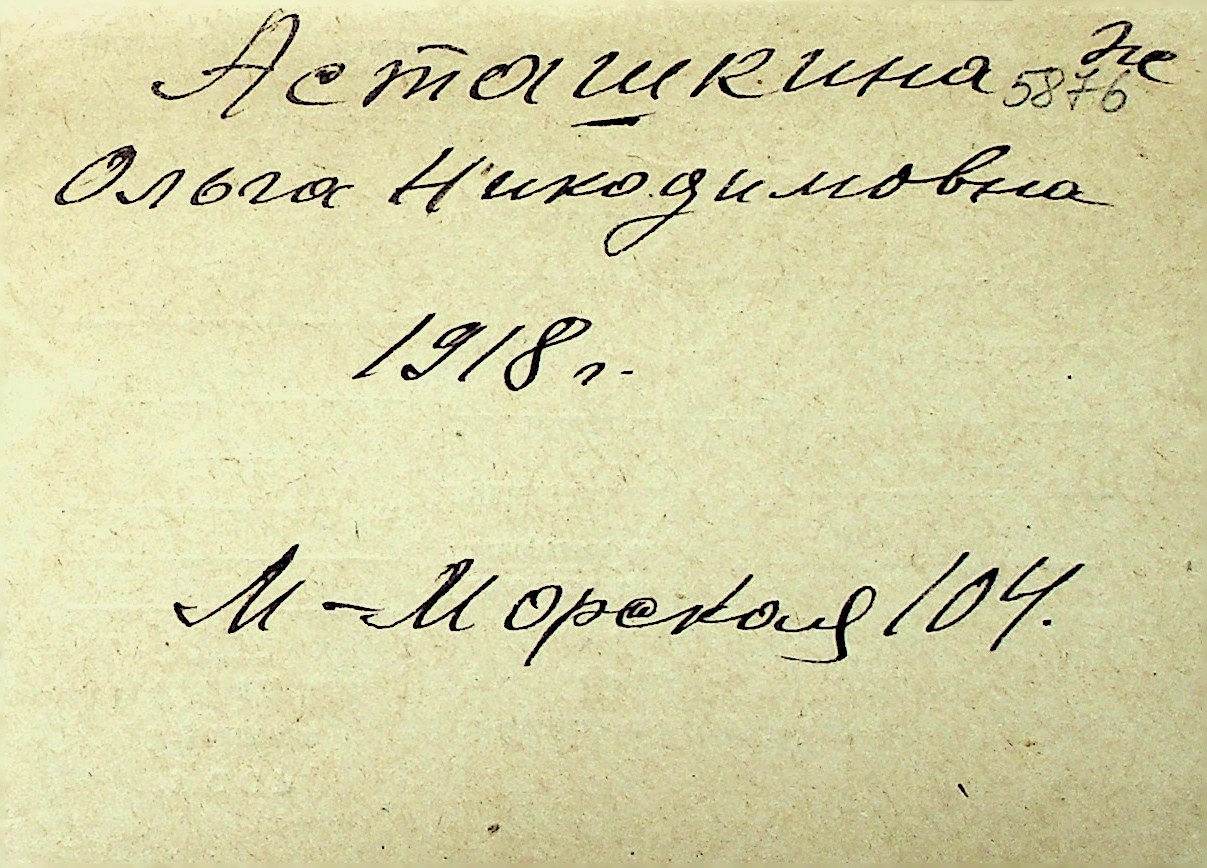 Асташкина 5876
Ольга Никодимовна
1918 г.
М-Морская 104.